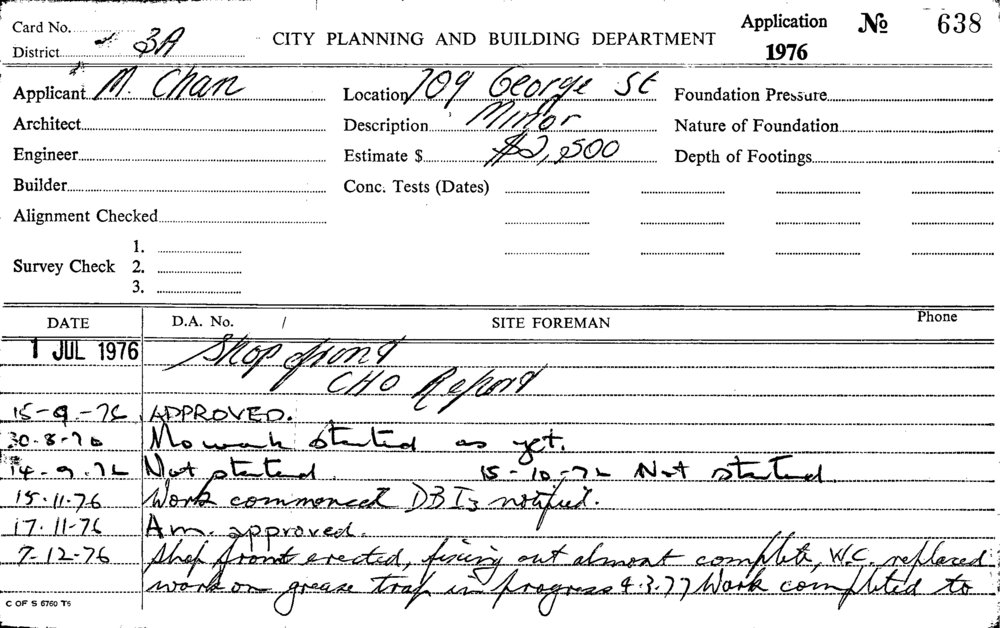 Card No. Application No 638
District 3A CITY PLANNING AND BUILDING DEPARTMENT 1976
Applicant M. Chan Location 709 George St Foundation Pressure
Architect Description Minor Nature of Foundation
Engineer Estimate $ $2,500 Depth of Footings
Builder Conc. Tests (Dates)
Alignment Checked
1.
Survey Check 2.
3.
DATE D.A. No. / SITE FOREMAN Phone
1 JUL 1976 Shop front
CHO Report
APPROVED.
No work started as yet.
Not started Not started
15-11-76 Work commenced DBIs notified.
17-11-76 Am. approved.
7-12-76 Shop front erected, fixing out almost complete, W.C. replaced
work on grease trap in progress 4.3.77 Work completed to
C OF S 6760 T5